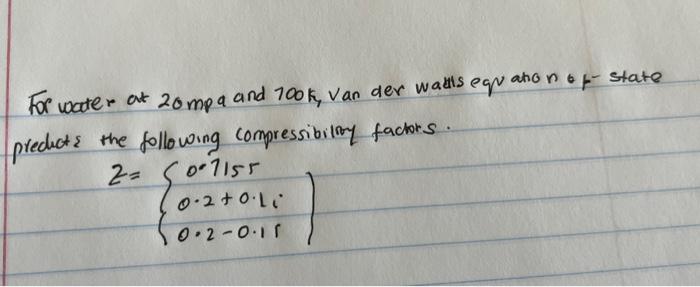 For water at 20mpa and 700k, Van der walls equation of state
predicts the following compressibility factors.
Z= { 0.7155
0.2+0.1i
0.2-0.1i }